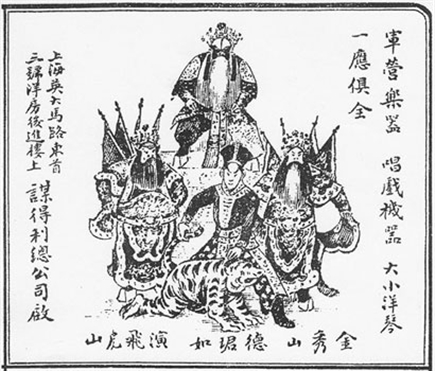 軍營樂器 唱戲機器 大小洋琴
一應俱全
上海英大馬路東首
三號洋房後進樓上
謀得利總公司啟
金秀山 德珺如 演飛虎山